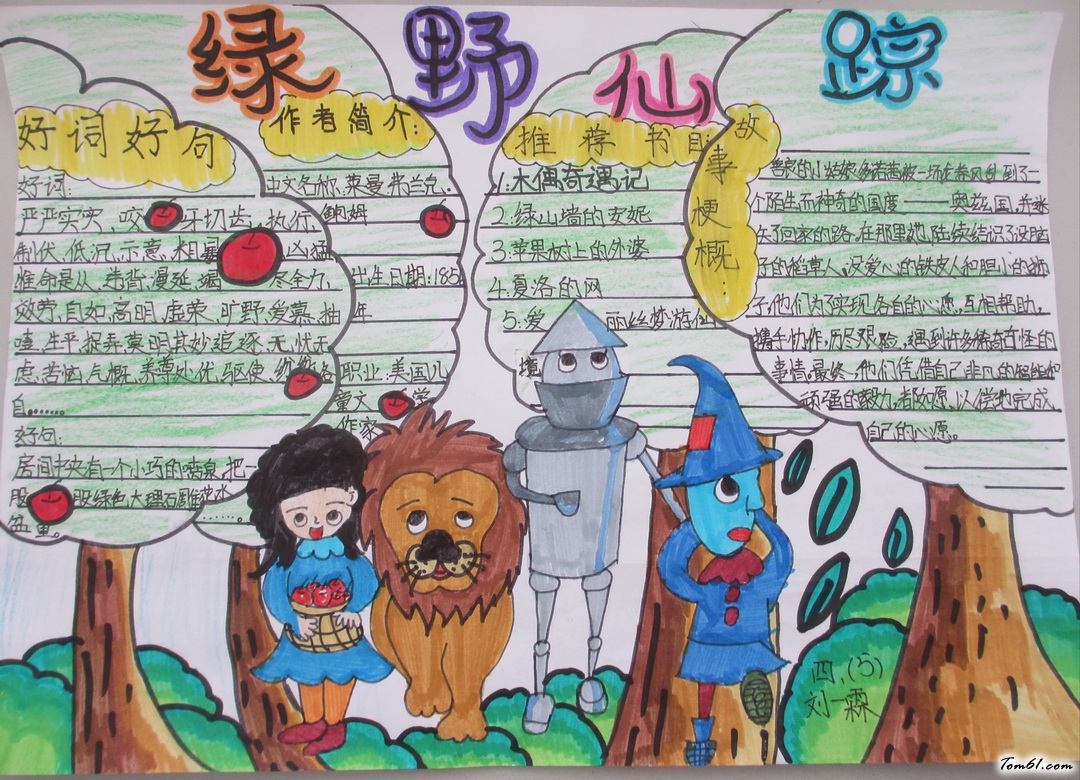 绿野仙踪
好词好句
好词:
严严实实、咬牙切齿、执行、
制伏、低沉、示意、粗暴、凶猛、
惟命是从、违背、漫延、竭尽全力、
效劳、自如、高明、虚荣、旷野、爱慕、抽
嗑、生平、捉弄、莫明其妙、追逐、无
虑、苦恼、气概、养尊处优、驱使、
自……
好句:
房间中央有一个小巧的喷泉,把一
股股绿色
里。
作者简介:
中文名称:莱曼·弗兰克·
鲍姆
出生日期:185
年
职业:美国儿
童文学
作家
推荐书目:
1.木偶奇遇记
2.绿山墙的安妮
3.苹果树上的外婆
4.夏洛的网
5.爱丽丝梦游仙
境
故事梗概:
个陌生而神奇的国度——奥兹国,并迷
失了回家的路。在那里她陆续结识了没脑
子的稻草人、没爱心的铁皮人和胆小的狮
子,他们为了实现各自的心愿,互相帮助,
携手协作,历尽艰险,遇到许多稀奇古怪的
事情。最终,他们凭借自己非凡的智能和
顽强的毅力,都如愿以偿地完成
自己的心愿。
四、(5)
刘一霖
Tom61.com